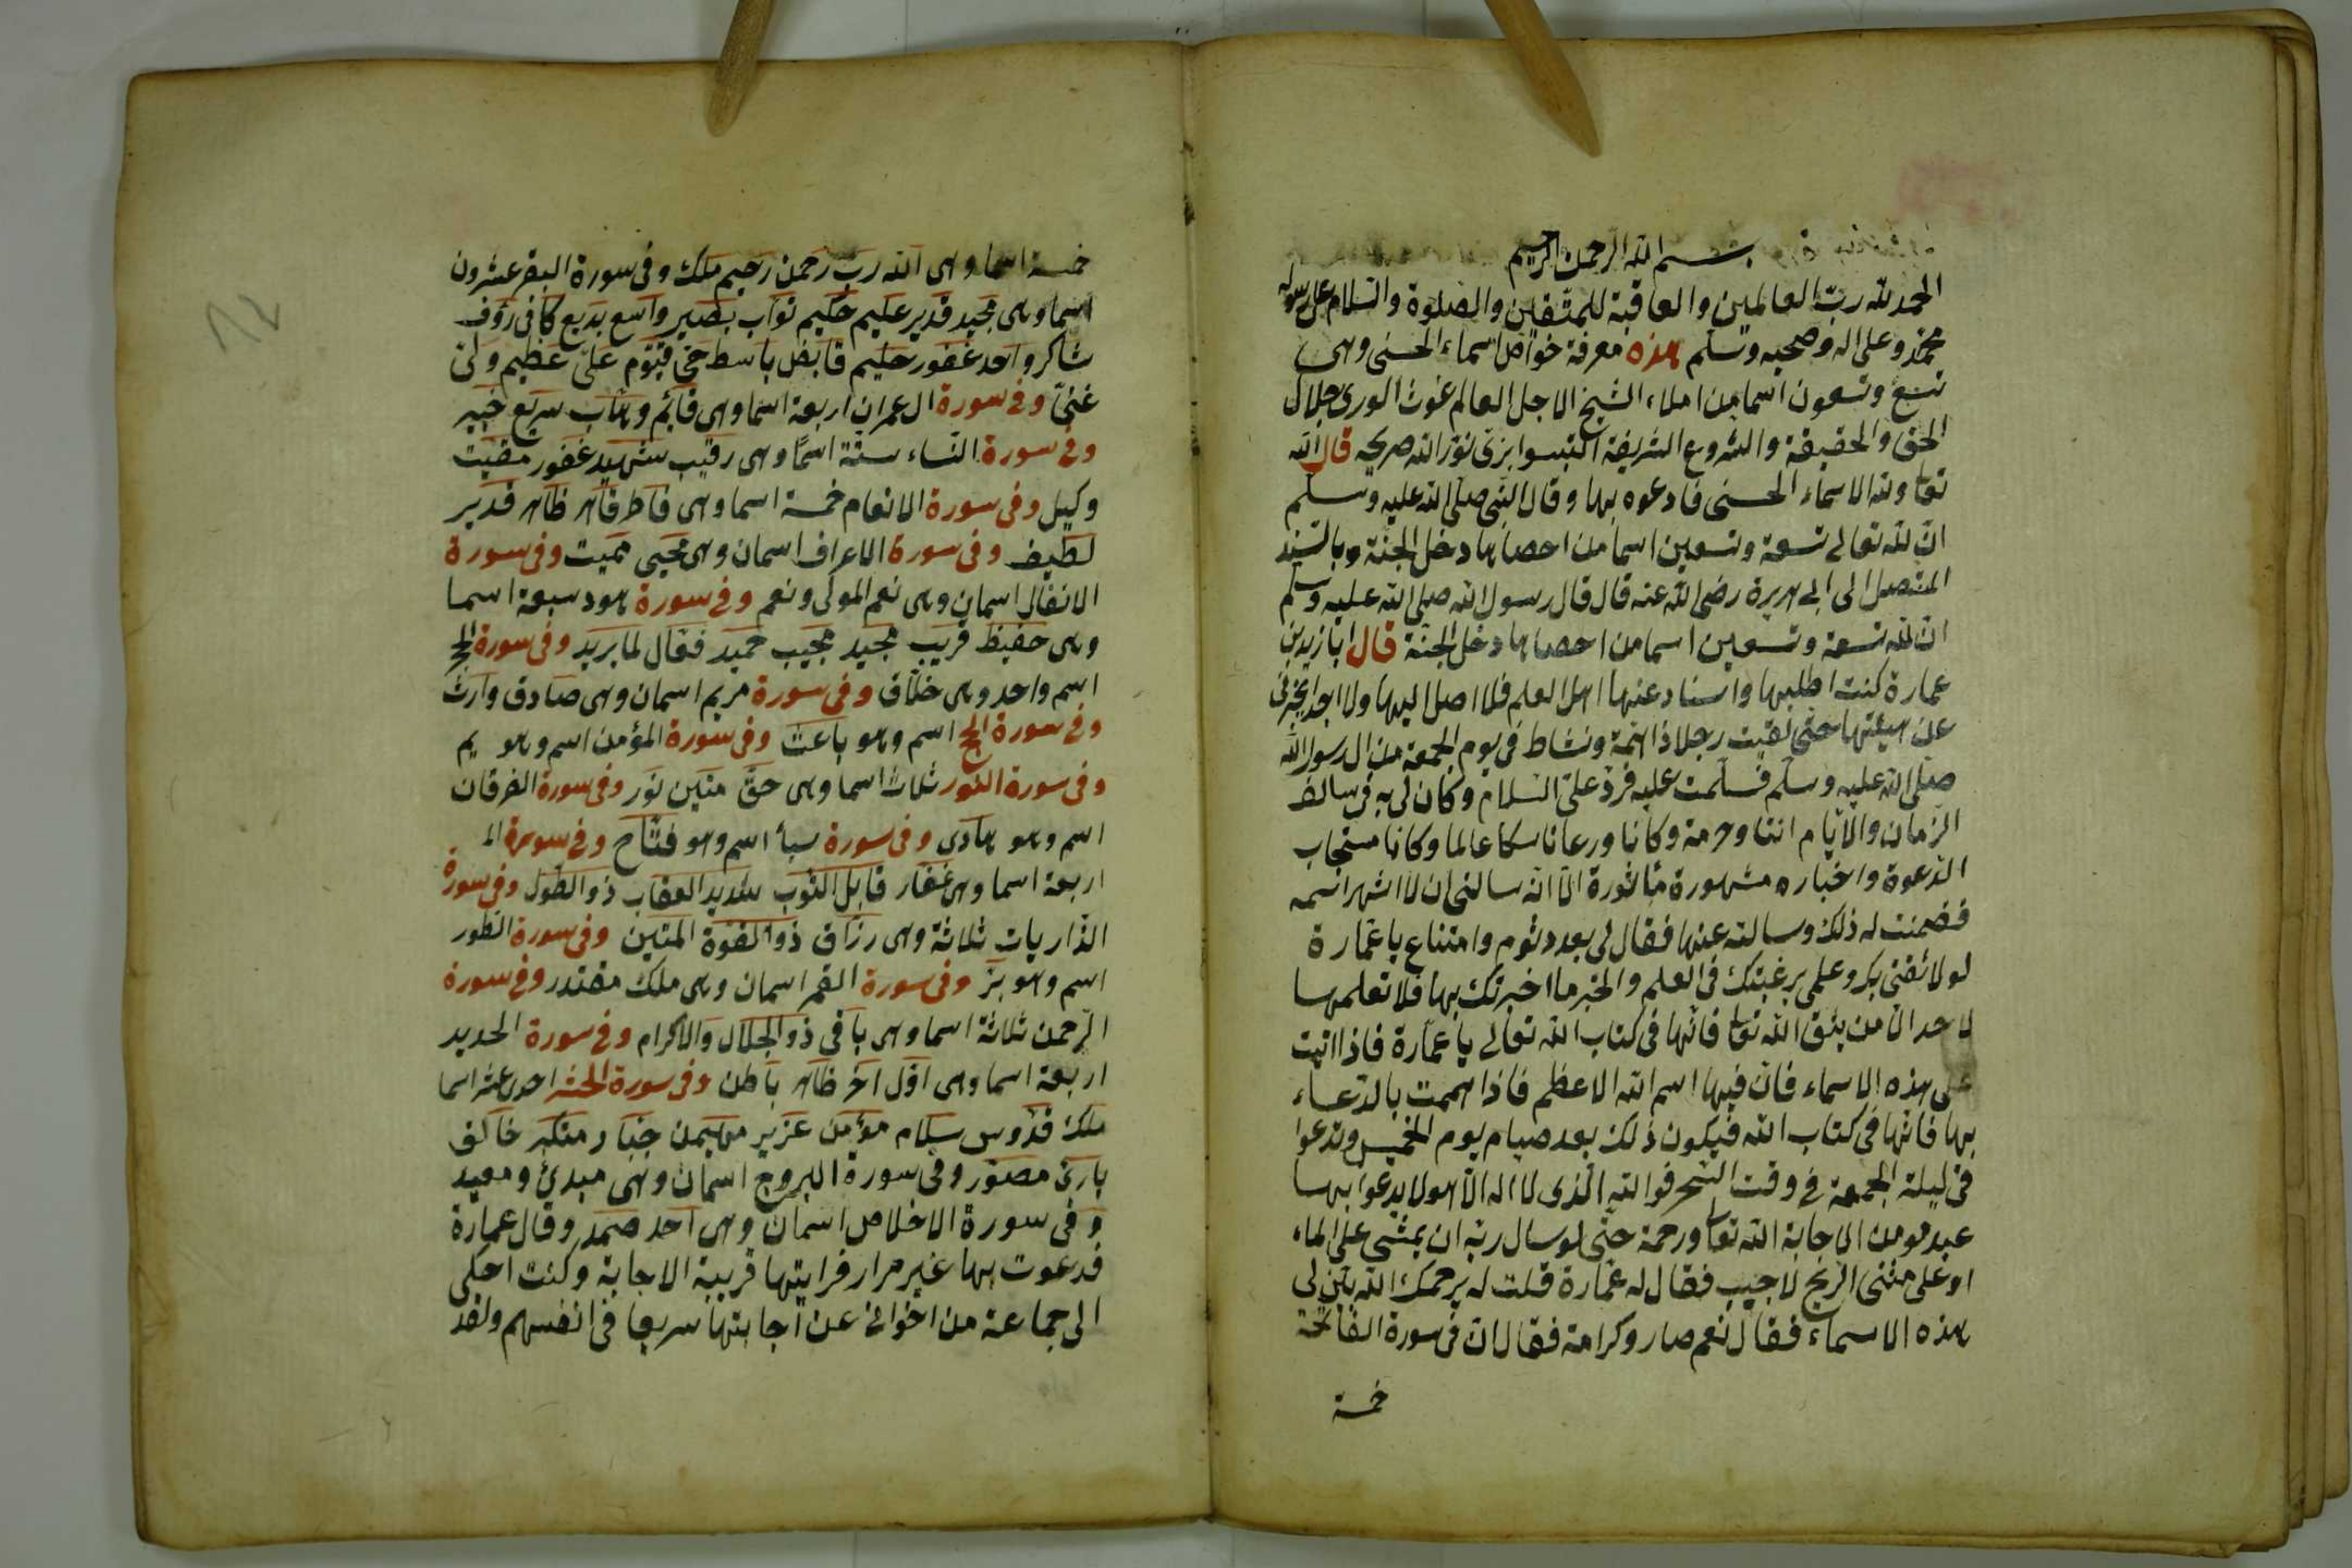 بسم الله الرحمن الرحيم
الحمد لله ربّ العالمين والعاقبة للمتّقين والصلوة والسلام على رسوله
محمّد وعلى اله وصحبه وسلم هذه معرفة خواص اسماء الحسنى وهى
تسع وتسعون اسما من املاء الشيخ الاجل العالم غوث الورى جلال
الحق والحقيقة والشروع الشريفة نوّر الله ضريحه قال الله
تعا ولله الاسماء الحسنى فادعوه بها وقال النبى صلى الله عليه وسلم
انّ لله تعالى تسعة وتسعين اسما من احصاها دخل الجنّة وبالسّند
المتصل الى ابى هريرة رضى الله عنه قال قال رسول الله صلى الله عليه وسلم
ان لله تسعة وتسعين اسما من احصاها دخل الجنّة قال ابا زيد بن
عمارة كنت اطلبها واسناد عنها اهل العلم فلا اصل اليها ولا اجد يخبرنى
عن هيئتها حتى لقيت رجلا ذا همّة ونشاط فى يوم الجمعة من ال رسول الله
صلى الله عليه وسلم فسلّمت عليه فردّ علىّ السلام وكان لى به فى سالف
الزمان والايّام انتا وحرمة وكانا ورعا ناسكا عالما وكانا مستجاب
الدّعوة واخباره مشهورة مأثورة الّا انّه سالنى ان لا اشهر اسمه
فضمنت له ذلك وسالته عنها فقال لى بعد دثوم وامتناع يا عمارة
لولا ثقتى بكر وعلمى برغبتك فى العلم والخبر ما اخبرتك بها فلا تعلمها
لاحد الّا من يثق الله تعا فانّها فى كتاب الله تعالى يا عمّارة فاذا اتيت
على هذه الاسماء فانّ فيها اسم الله الاعظم فاذا هممت بالدّعاء
بها فانّها فى كتاب الله فيكون ذلك بعد صيام يوم الخميس وتدعوا
فى ليلة الجمعة فى وقت السّحر فوالله الّذى لا اله الّا هو لا يدعوا بها
عبد مومن الا جابة الله تعا ورحمة حتّى لو سال ربّه ان يمشى على الماء
او على متنى الرّيح لاجيب فقال له عمّارة قلت له يرحمك الله بيّن لى
هذه الاسماء فقال نعم صار وكرامة فقال انّ فى سورة الفاتحة
خمسة
خمسة اسما وهى الله ربّ رحمن رحيم ملك وفى سورة البقر عشرون
اسما وهى مجيد قدير عليم حكيم توّاب بصير واسع بديع كافى رؤف
شاكر واحد غفور حليم قابض باسط حىّ قيّوم علىّ عظيم ولىّ
غنىّ وفى سورة ال عمران اربعة اسما وهى قايم وهّاب سريع خبير
وفى سورة النّساء ستّة اسمًا وهى رقيب شهيد غفور مقيت
وكيل وفى سورة الانعام خمسة اسما وهى فاطر قاهر ظاهر قدير
لطيف وفى سورة الاعراف اسمان وهى محيى مميت وفى سورة
الانفال اسمان وهى نعم المولى ونعم وفى سورة هود سبعة اسما
وهى حفيظ قريب مجيد مجيب حميد فعّال لما يريد وفى سورة الحجر
اسم واحد وهى خلّاق وفى سورة مريم اسمان وهى صادق وارث
وفى سورة الحج اسم وهو باعث وفى سورة المؤمن اسم وهو يم
وفى سورة النّور ثلاث اسما وهى حقّ متين نور وفى سورة الفرقان
اسم وهو هادى وفى سورة سبأ اسم وهو فتّاح وفى سورة الم
اربعة اسما وهى غفّار قابل التّوب شديد العقاب ذو الطّول وفى سورة
الذّاريات ثلاثة وهى رزّاق ذو القوّة المتين وفى سورة الطّور
اسم وهو برّ وفى سورة القمر اسمان وهى ملك مقتدر وفى سورة
الرّحمن ثلاثة اسما وهى باقى ذو الجلال والاكرام وفى سورة الحديد
اربعة اسما وهى اوّل اخر ظاهر باطن وفى سورة الحشر احدى عشر اسما
ملك قدّوس سلام مؤمن عزيز مهيمن جبّار متكبّر خالق
بارئ مصوّر وفى سورة البروج اسمان وهى مبدئ ومعيد
وفى سورة الاخلاص اسمان وهى احد صمد وقال عمارة
فدعوت بها غير مرار فرايتها قريبة الاجابة وكنت احكى
الى جماعة من اخوانى عن اجابتها سريعا فى انفسهم ولقد